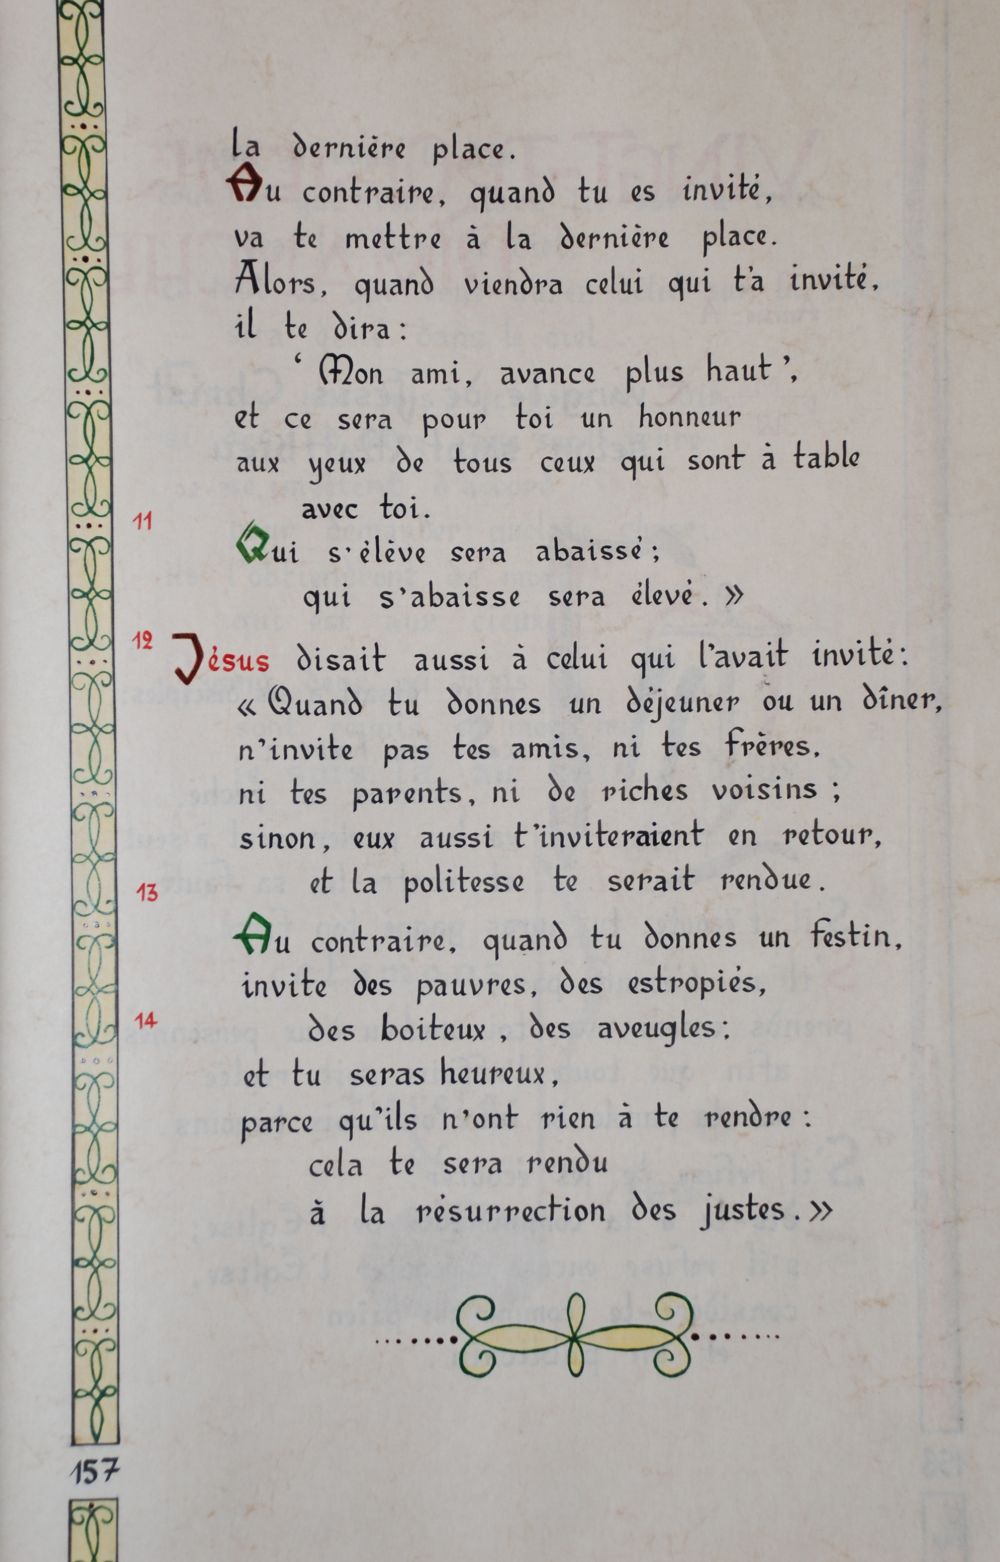 la dernière place.
Au contraire, quand tu es invité,
va te mettre à la dernière place.
Alors, quand viendra celui qui t'a invité,
il te dira :
‘ Mon ami, avance plus haut ’,
et ce sera pour toi un honneur
aux yeux de tous ceux qui sont à table
avec toi.
11
Qui s'élève sera abaissé ;
qui s'abaisse sera élevé. »
12
Jésus disait aussi à celui qui l'avait invité :
« Quand tu donnes un déjeuner ou un dîner,
n'invite pas tes amis, ni tes frères,
ni tes parents, ni de riches voisins ;
sinon, eux aussi t'inviteraient en retour,
et la politesse te serait rendue.
13
Au contraire, quand tu donnes un festin,
invite des pauvres, des estropiés,
14
des boiteux, des aveugles ;
et tu seras heureux,
parce qu'ils n'ont rien à te rendre :
cela te sera rendu
à la résurrection des justes. »
157